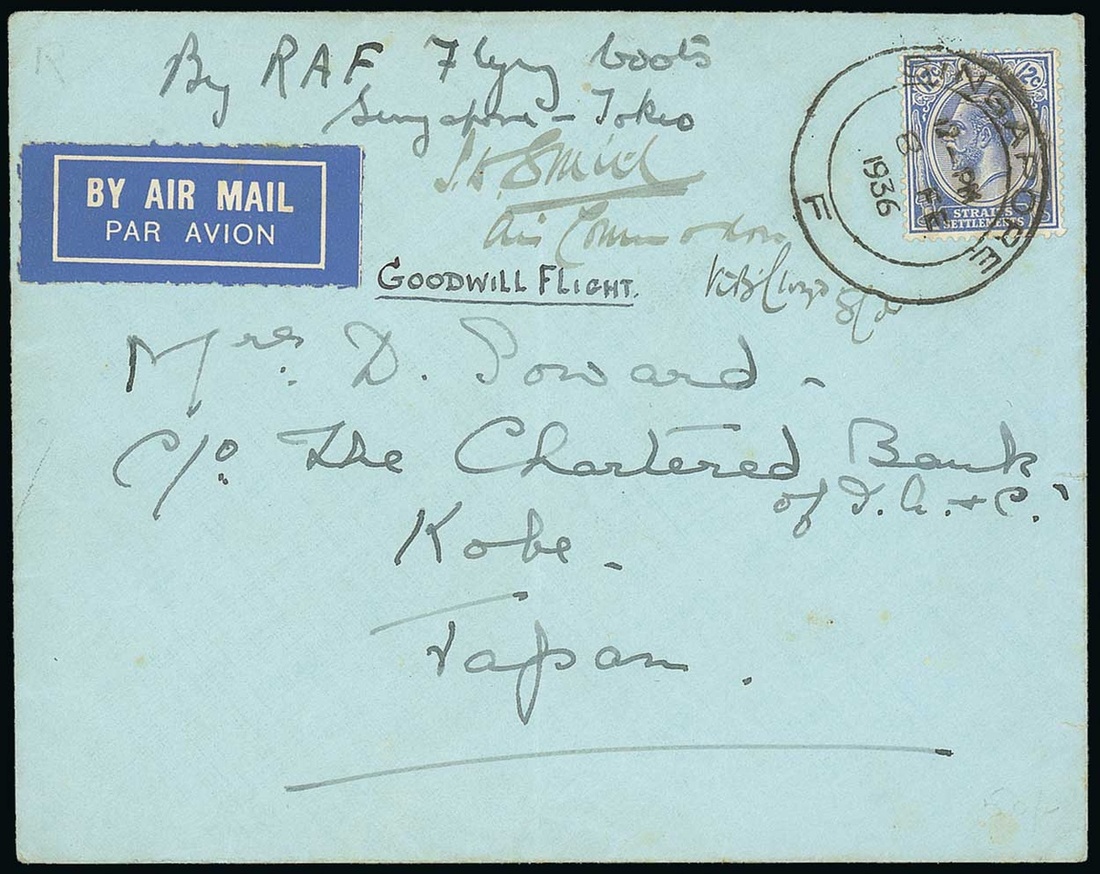 By RAF Flying boats
Singapore - Tokio
Air Commodore
BY AIR MAIL
PAR AVION
GOODWILL FLIGHT.
12c 12c
STRAITS
SETTLEMENTS
SINGAPORE
PM
8 FE
1936
F
Mrs. D. Poward -
c/o. The Chartered Bank
of I. A. + C.
Kobe.
Japan.